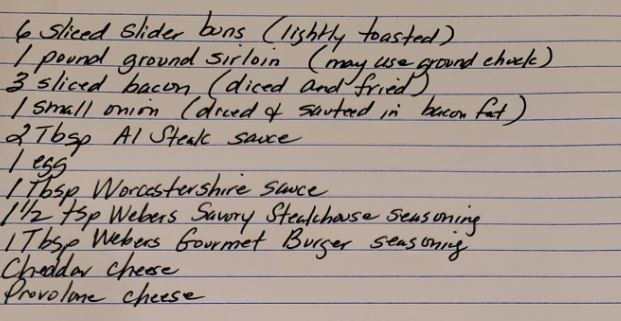 6 sliced slider buns (lightly toasted)
1 pound ground sirloin (may use ground chuck)
3 sliced bacon (diced and fried)
1 small onion (diced & sauteed in bacon fat)
2 Tbsp A1 Steak sauce
1 egg
1 Tbsp Worcestershire Sauce
1 1/2 tsp Webers Savory Steakhouse seasoning
1 Tbsp Webers Gourmet Burger seasoning
Cheddar cheese
Provolone cheese